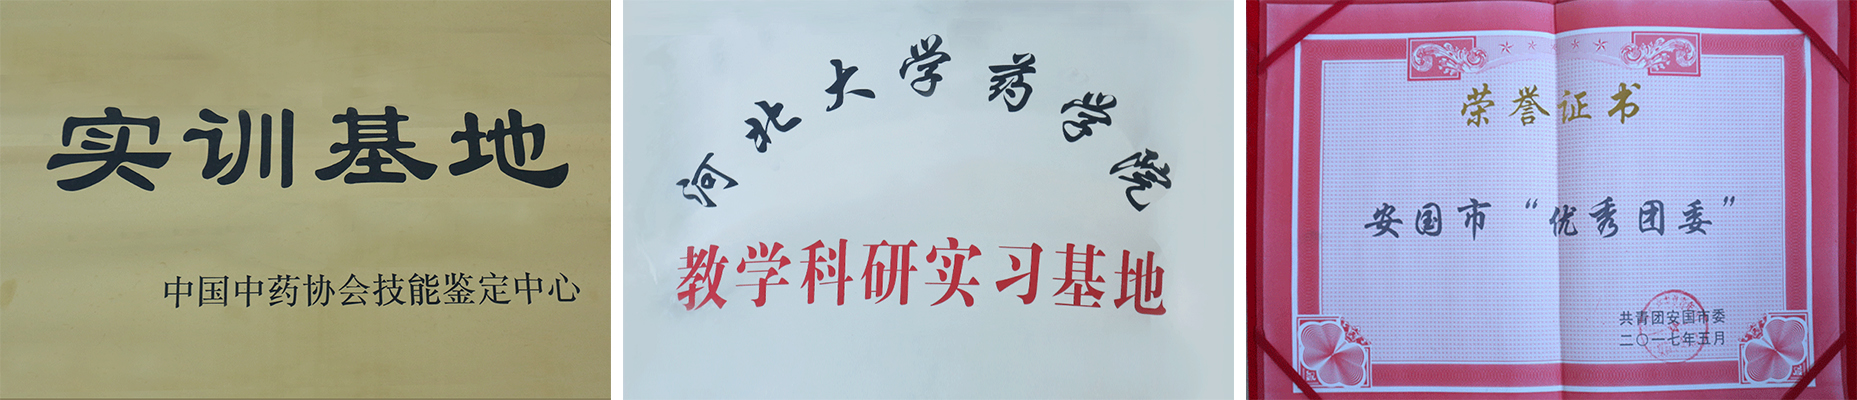 实训基地
中国中药协会技能鉴定中心
河北大学药学院
教学科研实习基地
荣誉证书
安国市“优秀团委”
共青团安国市委
二〇一七年五月